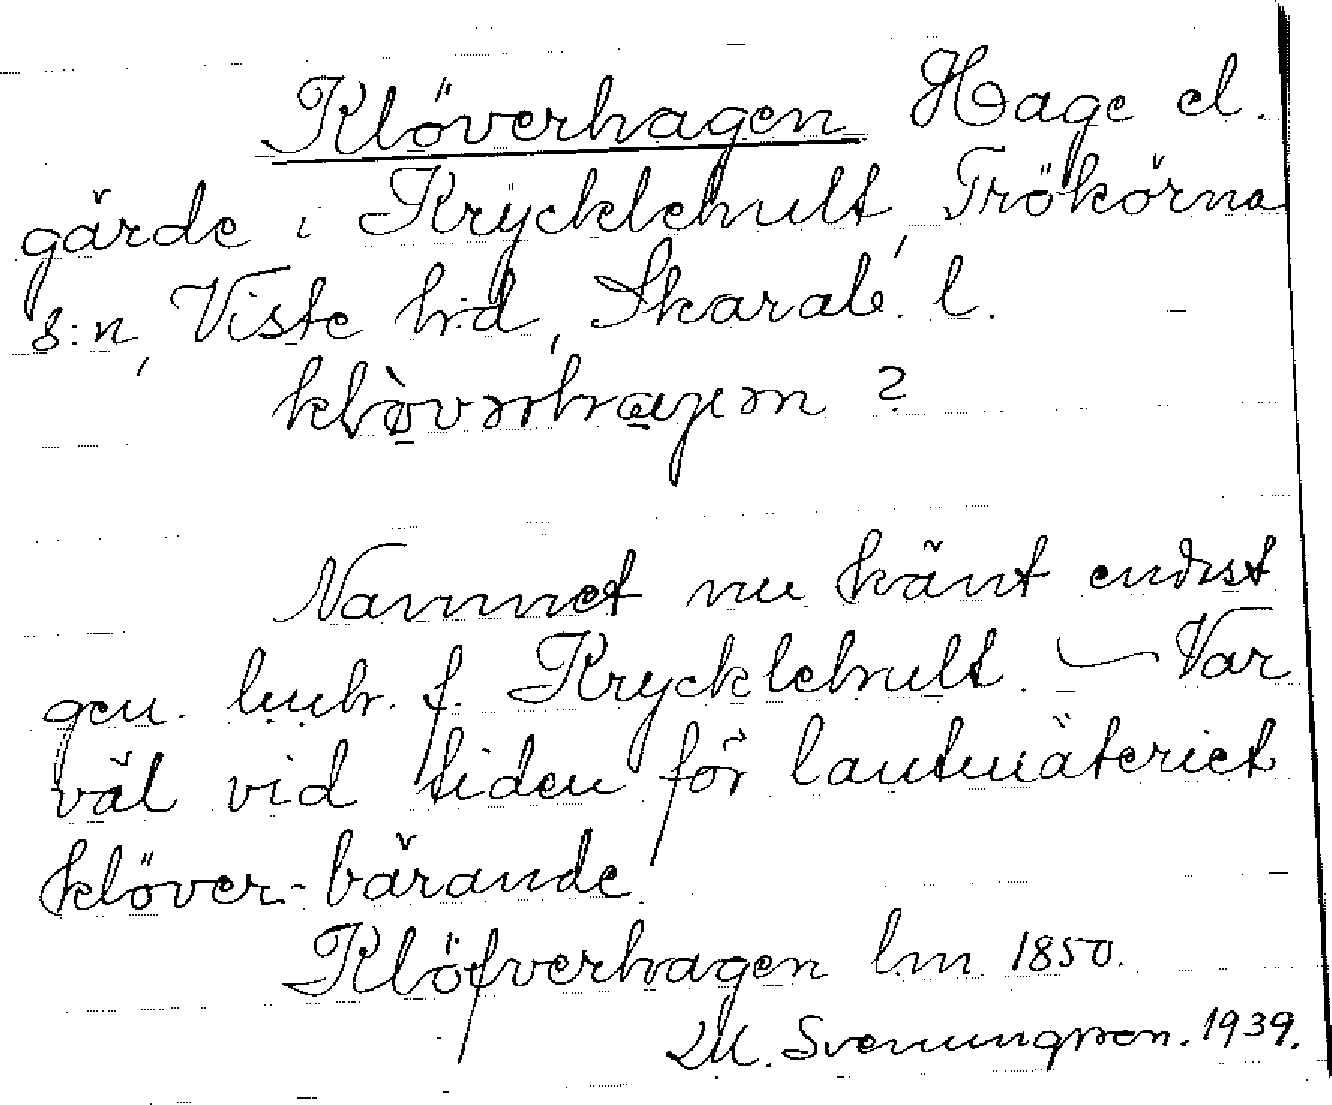 Klöverhagen Hage el.
gärde i Krycklehult, Trökörna
s:n, Viste hd, Skarab. l.
?
Namnet nu känt endast
gen. lmh. f. Krycklehult. – Var
väl vid tiden för lantmäteriet
klöver-bärande.
Klöfverhagen lm 1850.
M. Svenungsson. 1939.